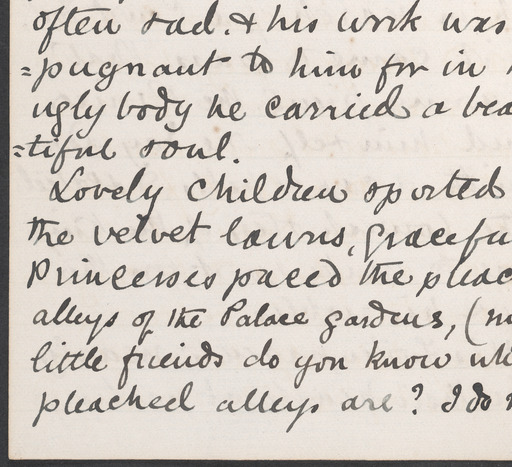 often sad. & his work was
=pugnant to him for in
ugly body he carried a bea
=tiful soul.
Lovely children sported
the velvet lawns, gracefu
Princesses paced the pleac
alleys of the Palace gardens, (m
little friends do you know wh
pleached alleys are? I do n